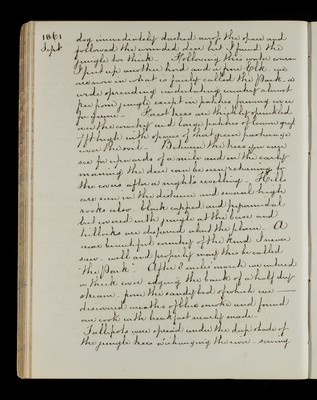 1861
Sept
dog immediately dashed across the open and
followed the wounded deer but I found the
jungle too thick. Following this water course
I put up another hind and a fine Elk we
are now in what is fairly called the Park - a
wide spreading undulating country almost
free from jungle except in patches, forming cover
for game. Forest trees are thickly sprinkled
over the country and large patches of lemon grass
7ft high with spaces of short green pasturage
over the soil. Between the trees you may
see for upwards of a mile and in the early
morning the deer can be seen returning to
the covers after a night's rambling. Hills
are seen in the distance and several high
rocks also, black capped and pyramidal
but covered with jungle at the base and
hillocks are dispersed about the place. A
more beautiful country of the kind I never
saw well and properly may this be called
"the Park". After 8 miles march we entered
a thick cover edging the bank of a half dry
stream, from the sandy bed of which we
discovered wreaths of blue smoke and found
our cook with breakfast nearly made.
Tallipots were spread under the deep shade of
the jungle trees overhanging the river - serving